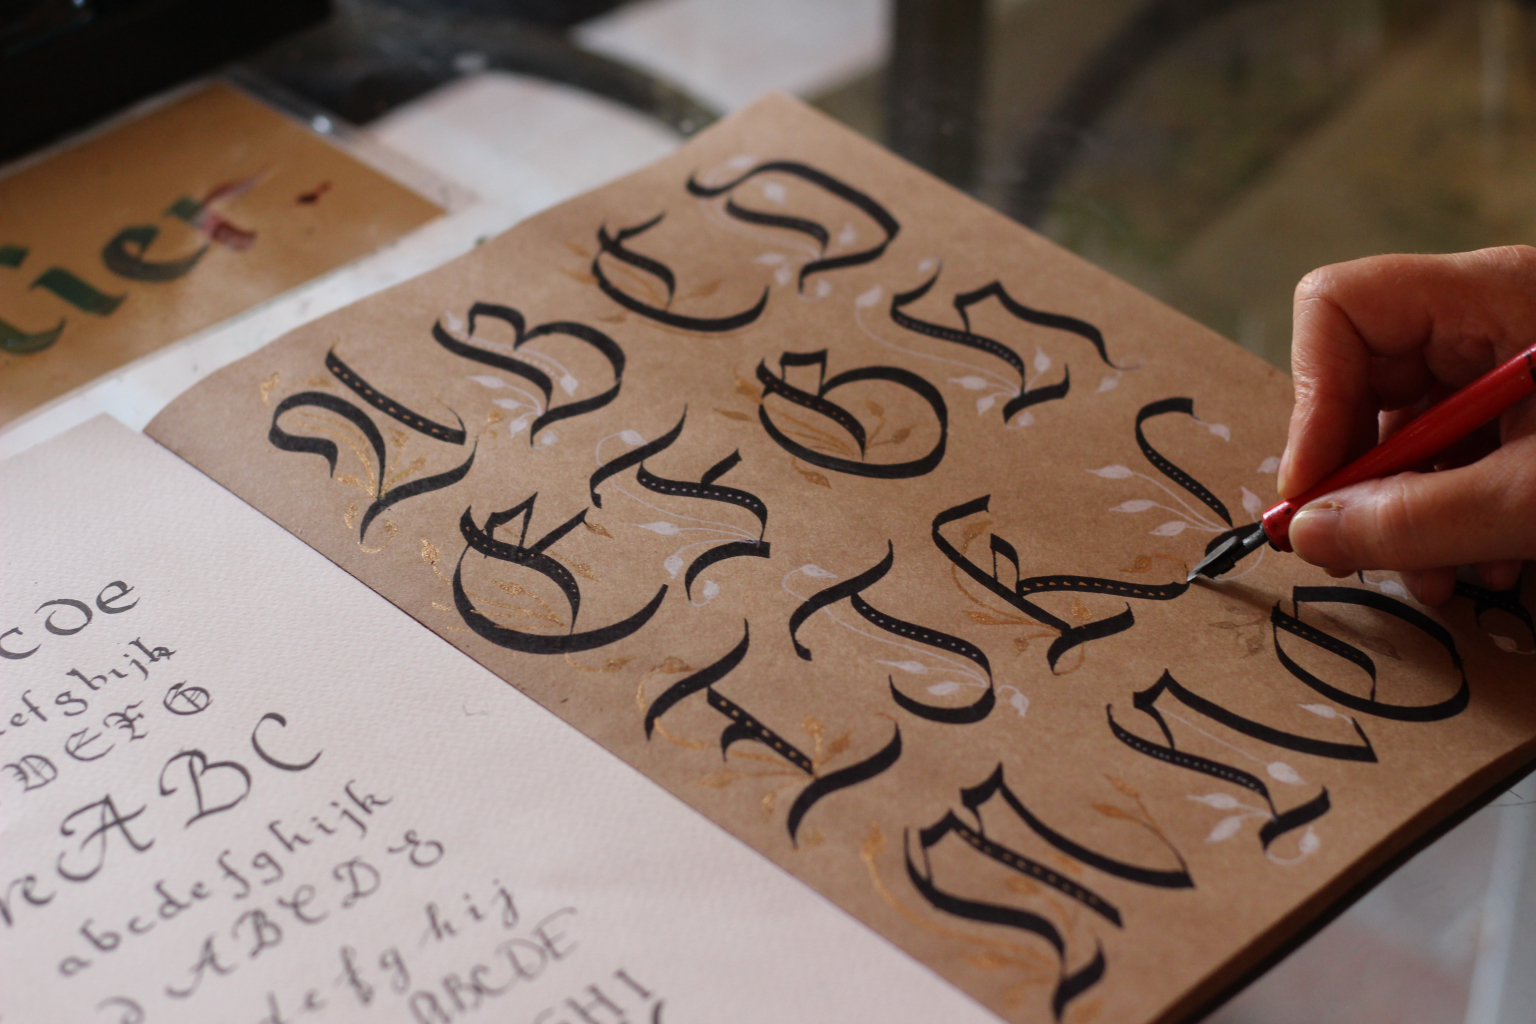 tier.
A B C D
E F G H
I J K L
M N O
c D e
efghijk
D E F G
re A B C
abcdefghijk
A B C D E
defghij
ABCDE
GHI